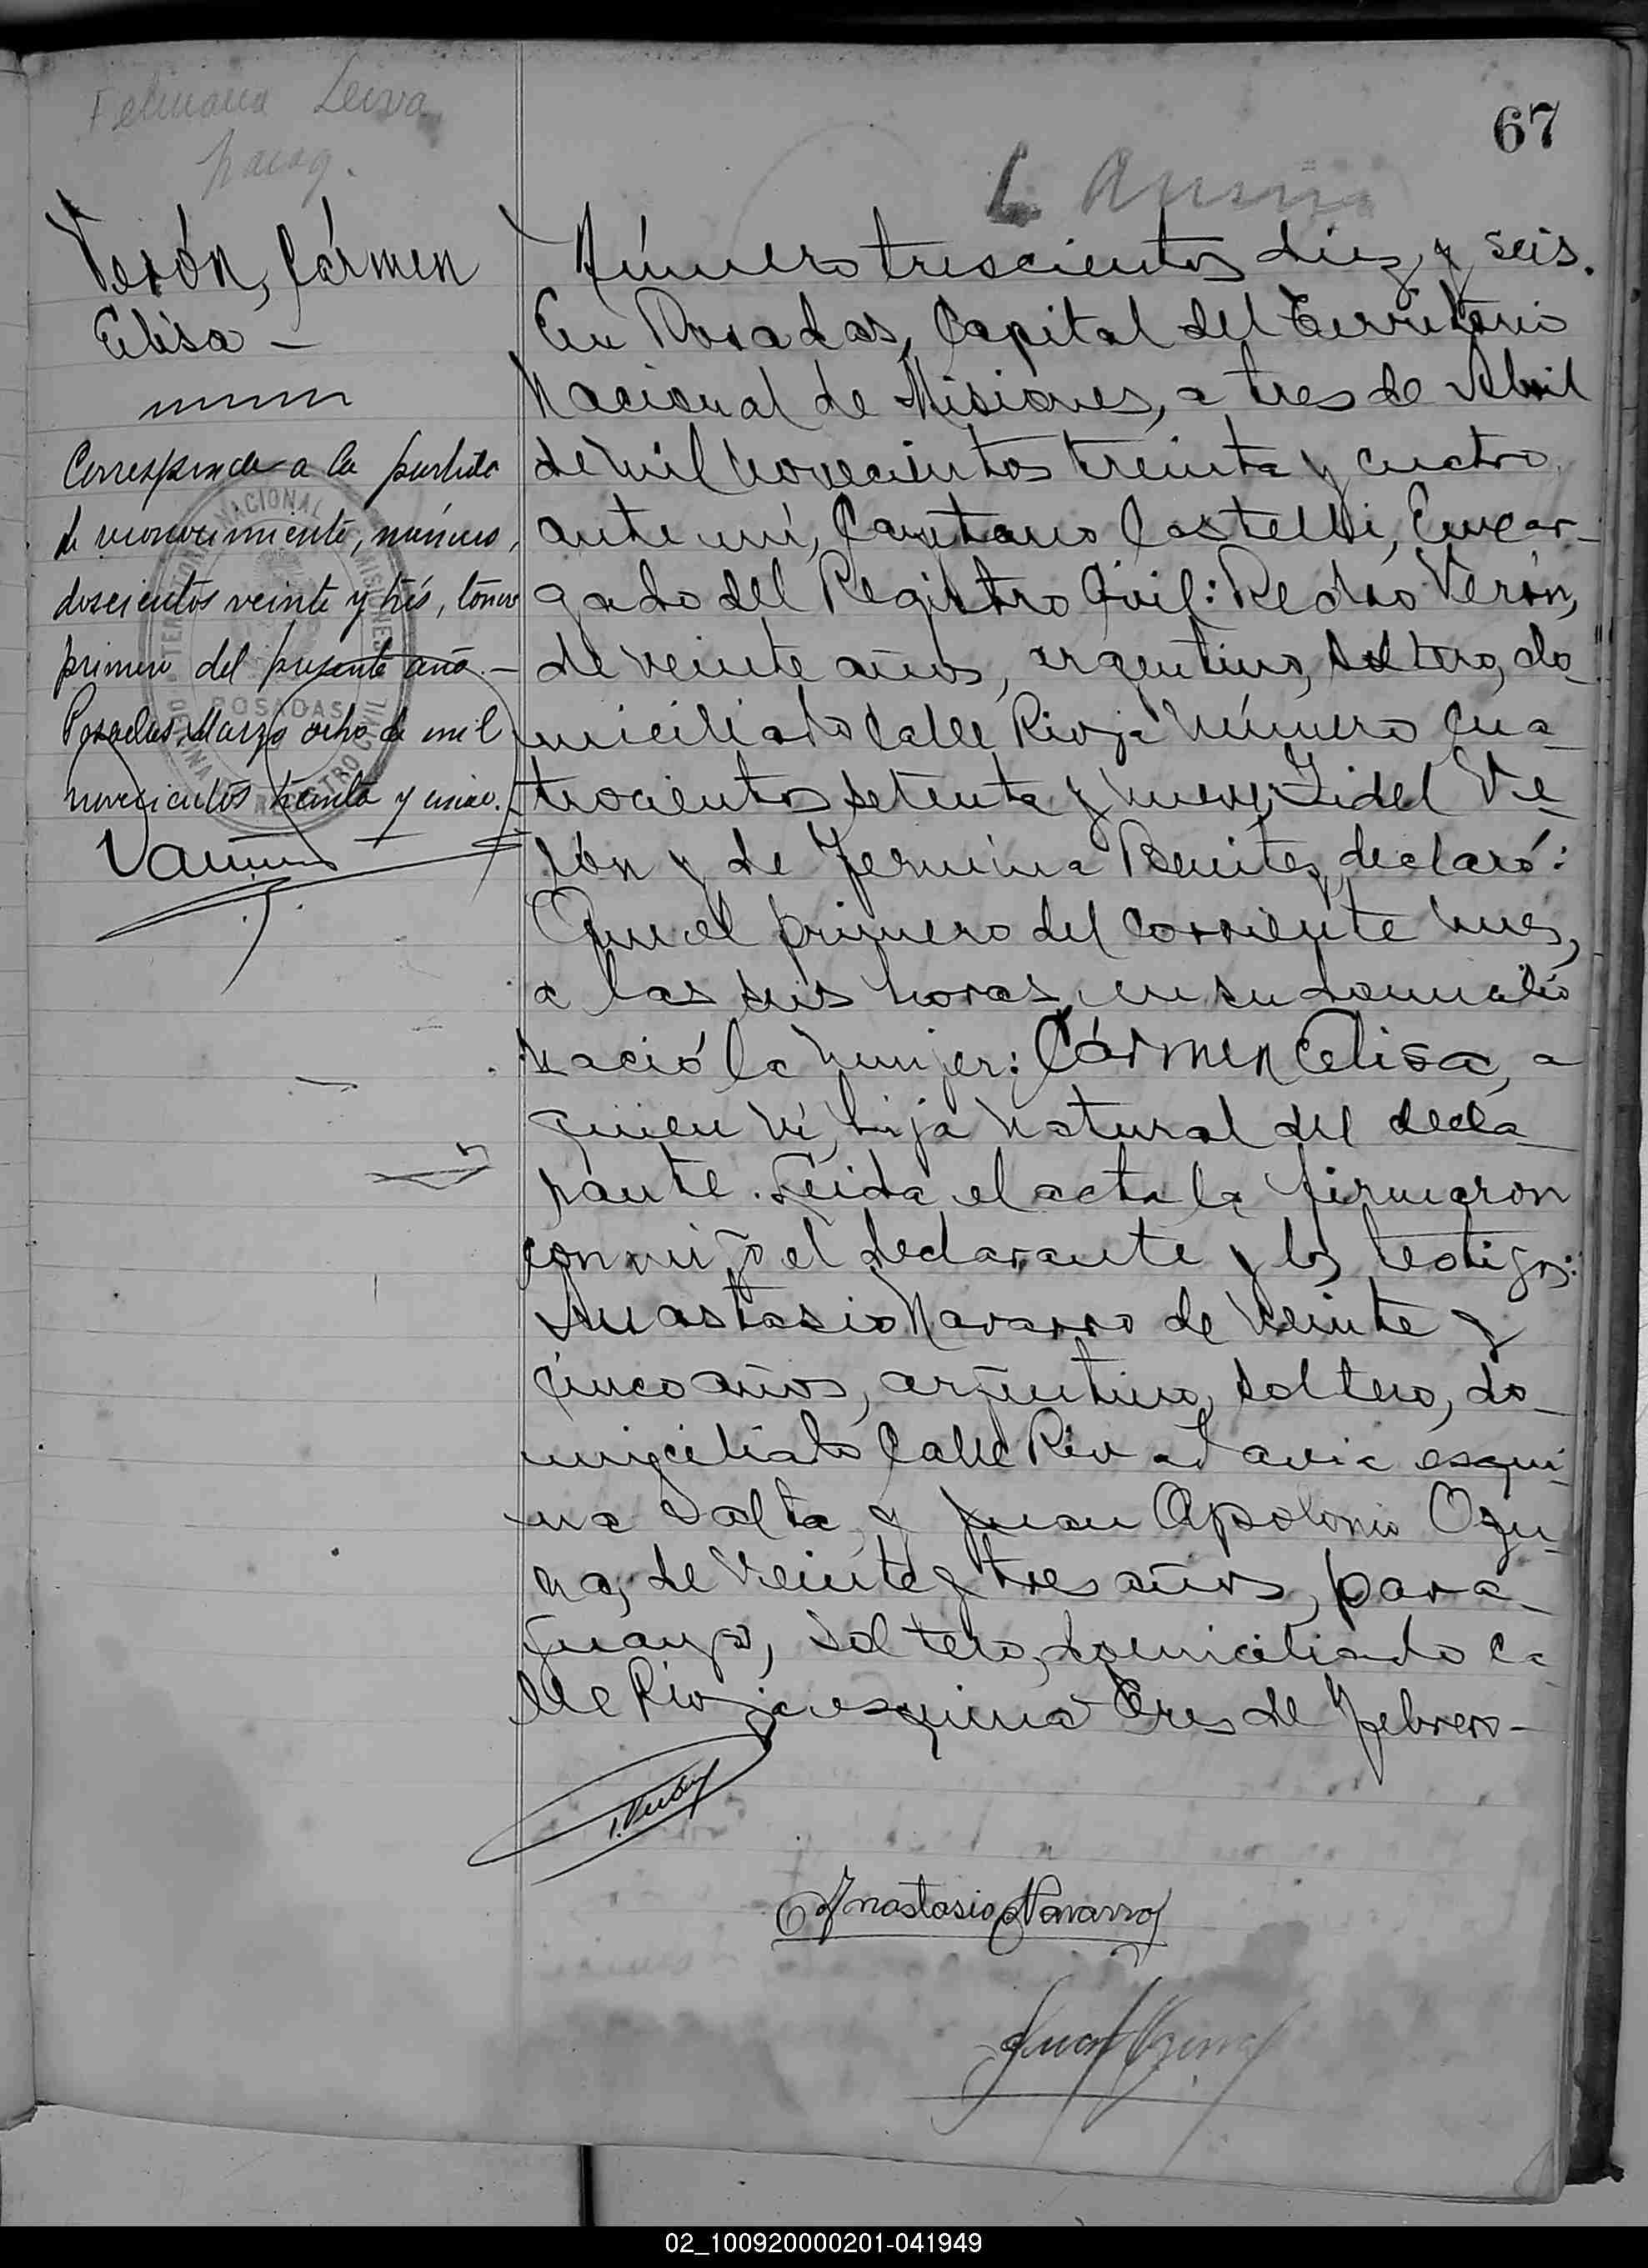 67
Verón, Cármen
Elisa –
Corresponde a la partida
de reconocimiento, número,
doscientos veinte y trés, tomo
primero del presente año. –
Posadas, Marzo ocho de mil
novecientos treinta y cinco.
TERRITORIO NACIONAL MISIONES
POSADAS
REGISTRO CIVIL
Número trescientos diez y seis.
En Posadas, Capital del Territorio
Nacional de Misiones, a tres de Abril
de mil novecientos treinta y cuatro
ante mí, Cayetano Castelli, Encar-
gado del Registro Civil: Pedro Verón,
de veinte años, argentino, soltero, do-
miciliado calle Rioja número cua-
trocientos setenta y nueve, Fidel Ve-
rón y de Fermina Benitez, declaró:
Que el primero del corriente mes,
a las seis horas, en su domicilio
nació la mujer: Cármen Elisa, a
quien ví, hija natural del decla-
rante. Leida el acta la firmaron
conmigo el declarante y los testigos:
Anastasio Navarro de veinte y
cinco años, argentino, soltero, do-
miciliado calle Rivadavia esqui-
na Salta, y Juan Apolonio Ozu-
na, de veinte y tres años, para-
guayo, soltero, domiciliado ca-
lle Rioja esquina Tres de Febrero –
Anastasio Navarro
Juan Ozuna
02_100920000201-041949